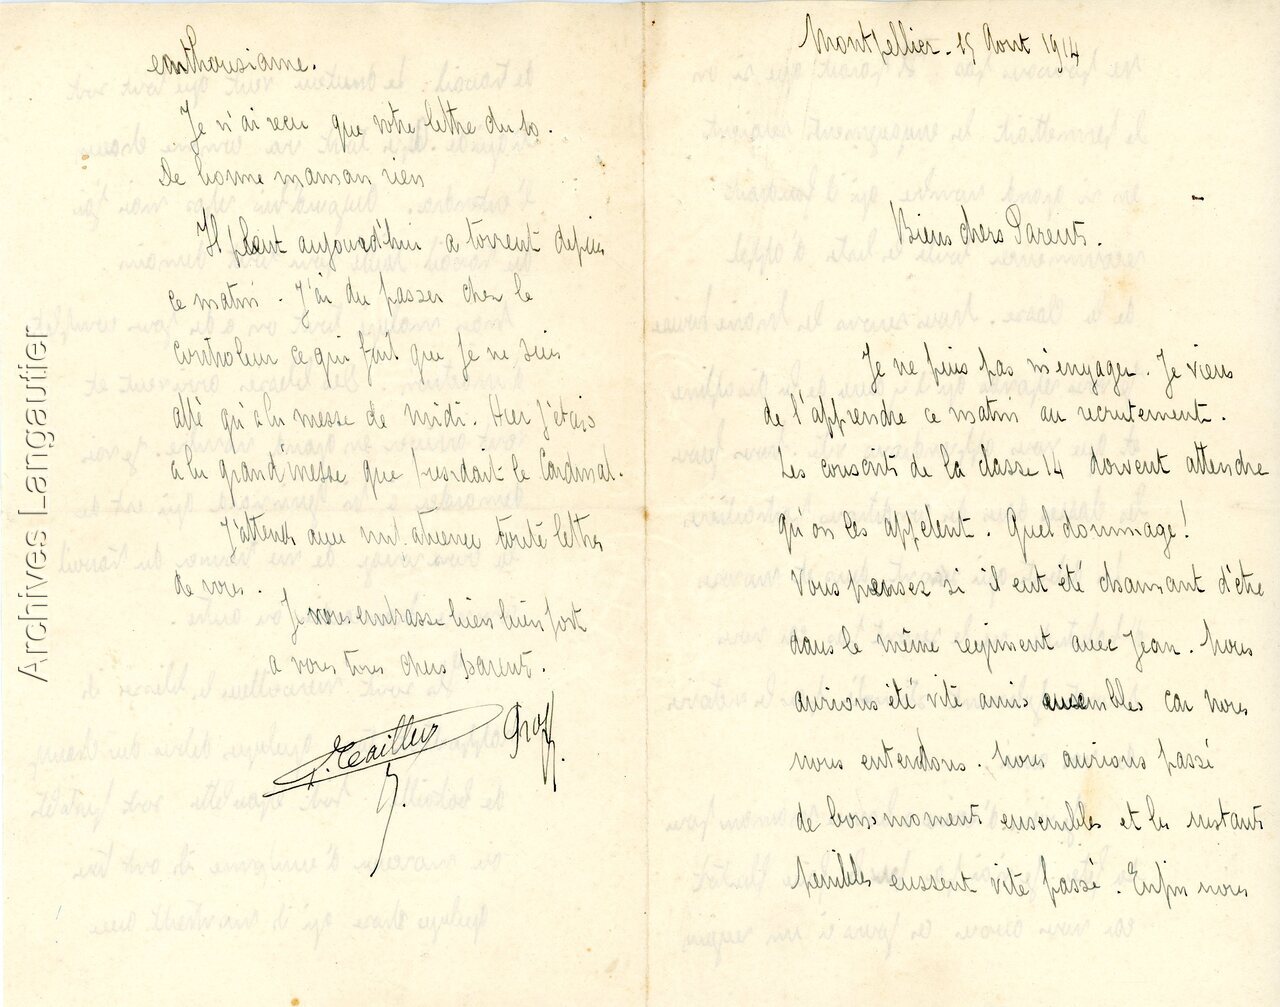 Montpellier. 15 Aout 1914
Biens chers Parents.
Je ne puis pas m'engager. Je viens
de l'apprendre ce matin au recrutement.
Les conscrits de la classe 14 doivent attendre
qu'on les appelent. Quel dommage!
Vous pensez si il eut été charmant d'être
dans le même regiment avec Jean. Nous
aurions été vite amis ensembles car nous
nous entendons. Nous aurions passé
de bons moments ensembles et les instants
penibles eussent vite passé. Enfin nous
enthousiasme.
Je n'ai recu que votre lettre du 10.
De bonne maman rien
Il pleut aujourd'hui a torrent depuis
ce matin. J'ai du passer chez le
controleur ce qui fait que je ne suis
allé qu'à la messe de midi. Hier j'étais
a la grand messe que presidait le Cardinal.
J'attends avec impatience toute lettre
de vous.
Je vous embrasse bien bien fort
a vous tous chers parents.
J. Tailhes
Archives Langautier